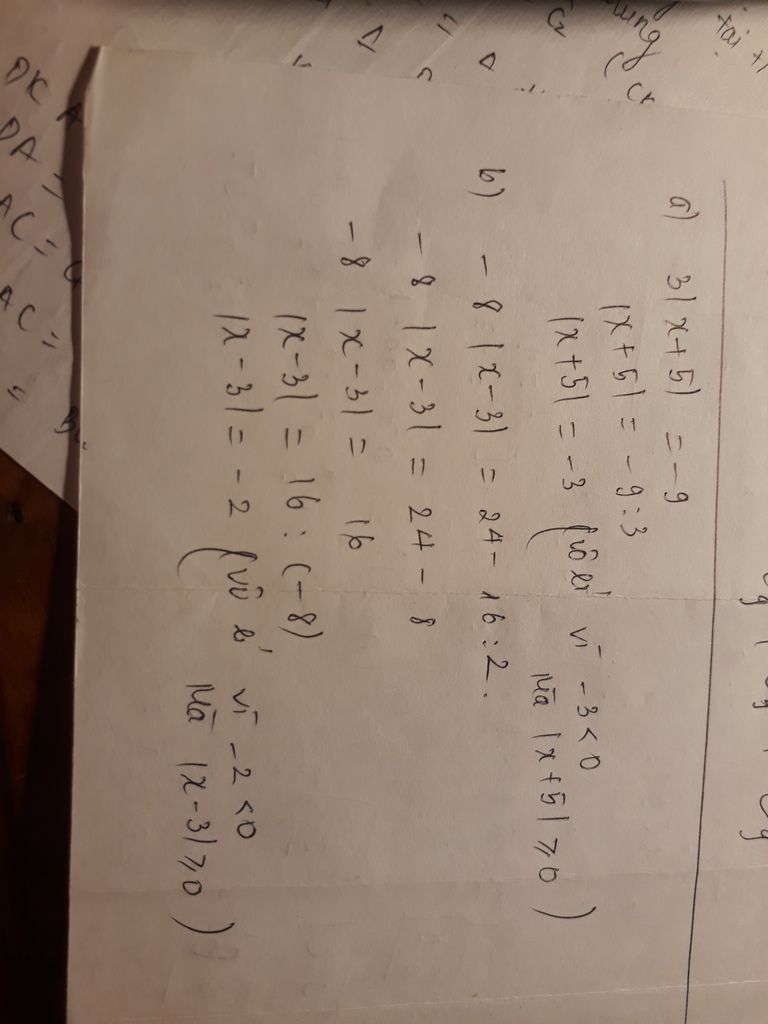 a) 3|x+5| = -9
|x+5| = -9:3
|x+5| = -3 (vô lí vì -3<0
mà |x+5| ⩾0)
b) -8|x-3| = 24-16:2.
-8|x-3| = 24-8
-8|x-3| = 16
|x-3| = 16:(-8)
|x-3| = -2 (vô lí vì -2<0
mà |x-3| ⩾0)
DK
DA =
AC =
AC =
=